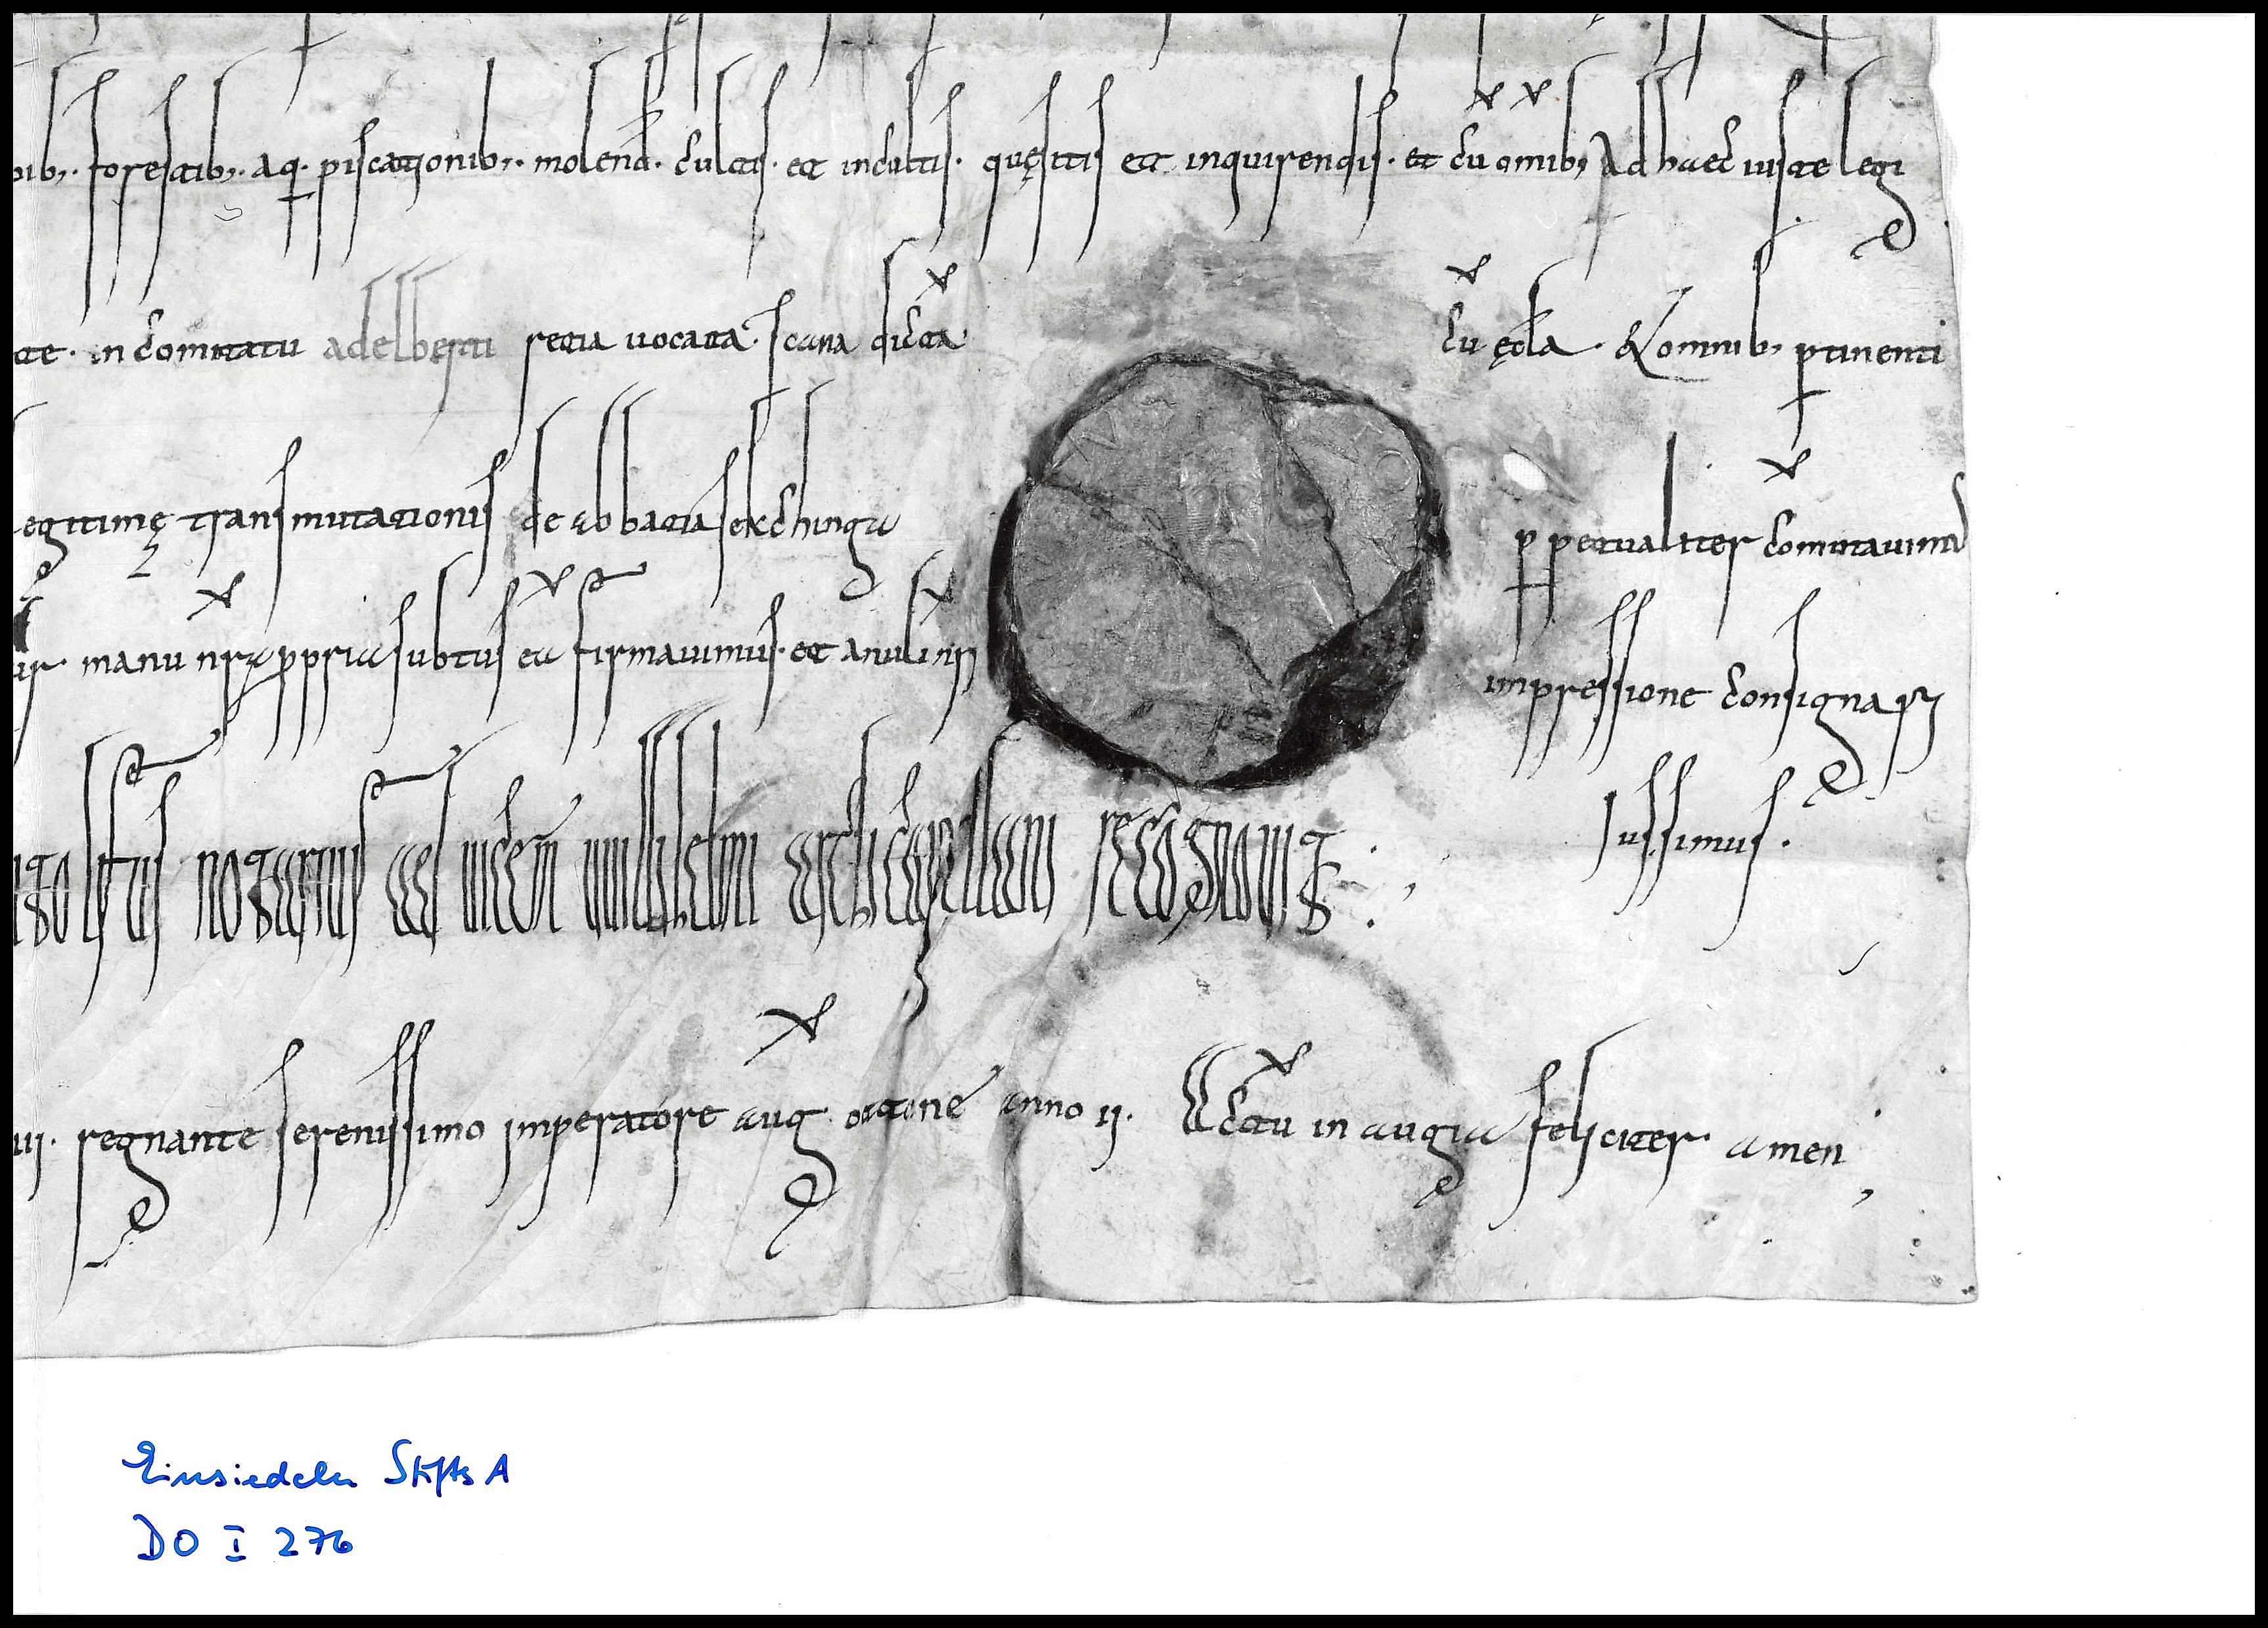 nib;. forestib;. aq. piscationib;. molend. cultis. et incultis. quęsitis et inquirendis. et cu omnib; Ad haec iuste legi
te. in comitatu adelberti retia uocata. scana dicta cu ęccla. & omnib; ptinenti
egitimę transmutationis de abbatia sekchinga ppetualiter comutauim
ur manu nra ppria subtus ea firmauimus. et anuli nri impressione consignari
iussimus.
tgolfus notarius ad uicem uuillihelmi archicapellani recognoui
ui. regnante serenissimo imperatore aug ottone anno ii. Actu in augia feliciter amen
Einsiedeln StiftsA
DO I 276